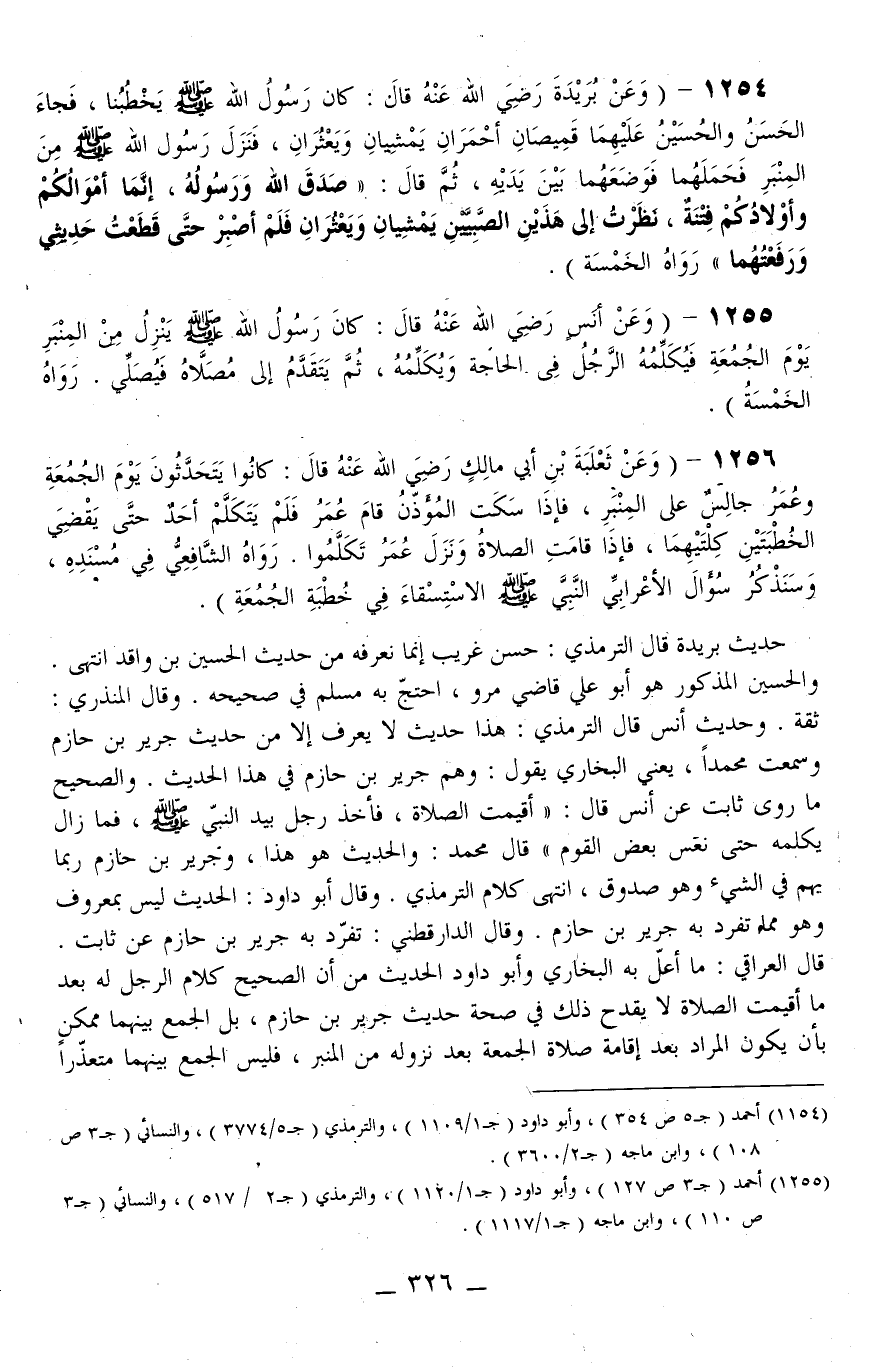 ١٢٥٤ – ( وَعَنْ بُرَيْدَةَ رَضِيَ الله عَنْهُ قالَ : كان رَسُولُ الله ﷺ يَخْطُبُنا ، فَجاءَ
الحَسَنُ والحُسَيْنُ عَلَيْهِمَا قَمِيصَانِ أحْمَرَانِ يَمْشيانِ وَيَعْثُرَانِ ، فَنَزَلَ رَسُول الله ﷺ مِنَ
المِنْبَرِ فَحَمَلَهُما فَوَضَعَهُما بَيْنَ يَدَيْهِ ، ثُمَّ قالَ : « صَدَقَ الله وَرَسُولُهُ ، إنَّمَا أمْوَالُكُمْ
وأوْلادُكُمْ فِتْنَةٌ ، نَظَرْتُ إلى هَذَيْنِ الصَّبِيَّيْنِ يَمْشيانِ وَيَعْثُرَانِ فَلَمْ أصْبِرْ حتَّى قَطَعْتُ حَدِيثِي
وَرَفَعْتُهُما » رَوَاهُ الخَمْسَة ) .
١٢٥٥ – ( وَعَنْ أنَسٍ رَضِيَ الله عَنْهُ قالَ : كانَ رَسُولُ الله ﷺ يَنْزِلُ مِنْ المِنْبَرِ
يَوْمَ الجُمُعَةِ فَيُكَلِّمُهُ الرَّجُلُ فِى الحاجَة وَيُكَلِّمُهُ ، ثُمَّ يَتَقَدَّمُ إلى مُصَلَّاهُ فَيُصَلِّي . رَوَاهُ
الخَمْسَةُ ) .
١٢٥٦ – ( وَعَنْ ثَعْلَبَةَ بْنِ أبي مالِكٍ رَضِيَ الله عَنْهُ قالَ : كانُوا يَتَحَدَّثُونَ يَوْمَ الجُمُعَةِ
وعُمَرُ جالِسٌ على المِنْبَرِ ، فإذَا سَكَت المُؤَذّنُ قامَ عُمَرُ فَلَمْ يَتَكَلَّم أحَدٌ حتَّى يَقْضِيَ
الخُطْبَتَيْنِ كِلْتَيْهِمَا ، فإذَا قامَتِ الصلاةُ وَنَزَلَ عُمَرُ تَكَلَّمُوا . رَوَاهُ الشَّافِعِيُّ فِي مُسْنَدِهِ ،
وَسَنَذْكُرُ سُؤَالَ الأعْرابِيِّ النَّبِيَّ ﷺ الاسْتِسْقاءَ فِي خُطْبَةِ الجُمُعَةِ ) .
حديث بريدة قال الترمذي : حسن غريب إنما نعرفه من حديث الحسين بن واقد انتهى .
والحسين المذكور هو أبو علي قاضي مرو ، احتجّ به مسلم في صحيحه . وقال المنذري :
ثقة . وحديث أنس قال الترمذي : هذا حديث لا يعرف إلا من حديث جرير بن حازم
وسمعت محمداً ، يعني البخاري يقول : وهم جرير بن حازم في هذا الحديث . والصحيح
ما روى ثابت عن أنس قال : « أقيمت الصلاة ، فأخذ رجل بيد النبيّ ﷺ ، فما زال
يكلمه حتى نعَس بعض القوم » قال محمد : والحديث هو هذا ، وجرير بن حازم ربما
يهم في الشيء وهو صدوق ، انتهى كلام الترمذي . وقال أبو داود : الحديث ليس بمعروف
وهو مما تفرد به جرير بن حازم . وقال الدارقطني : تفرّد به جرير بن حازم عن ثابت .
قال العراقي : ما أعلّ به البخاري وأبو داود الحديث من أن الصحيح كلام الرجل له بعد
ما أقيمت الصلاة لا يقدح ذلك في صحة حديث جرير بن حازم ، بل الجمع بينهما ممكن
بأن يكون المراد بعد إقامة صلاة الجمعة بعد نزوله من المنبر ، فليس الجمع بينهما متعذّراً
(١١٥٤) أحمد ( جـ٥ ص ٣٥٤ ) ، وأبو داود ( جـ١/١١٠٩ ) ، والترمذي ( جـ٥/٣٧٧٤ ) ، والنسائي ( جـ٣ ص
١٠٨ ) ، وابن ماجه ( جـ٢/٣٦٠٠ ) .
(١٢٥٥) أحمد ( جـ٣ ص ١٢٧ ) ، وأبو داود ( جـ١/١١٢٠ ) ، والترمذي ( جـ٢ / ٥١٧ ) ، والنسائي ( جـ٣
ص ١١٠ ) ، وابن ماجه ( جـ١/١١١٧ ) .
– ٣٢٦ –